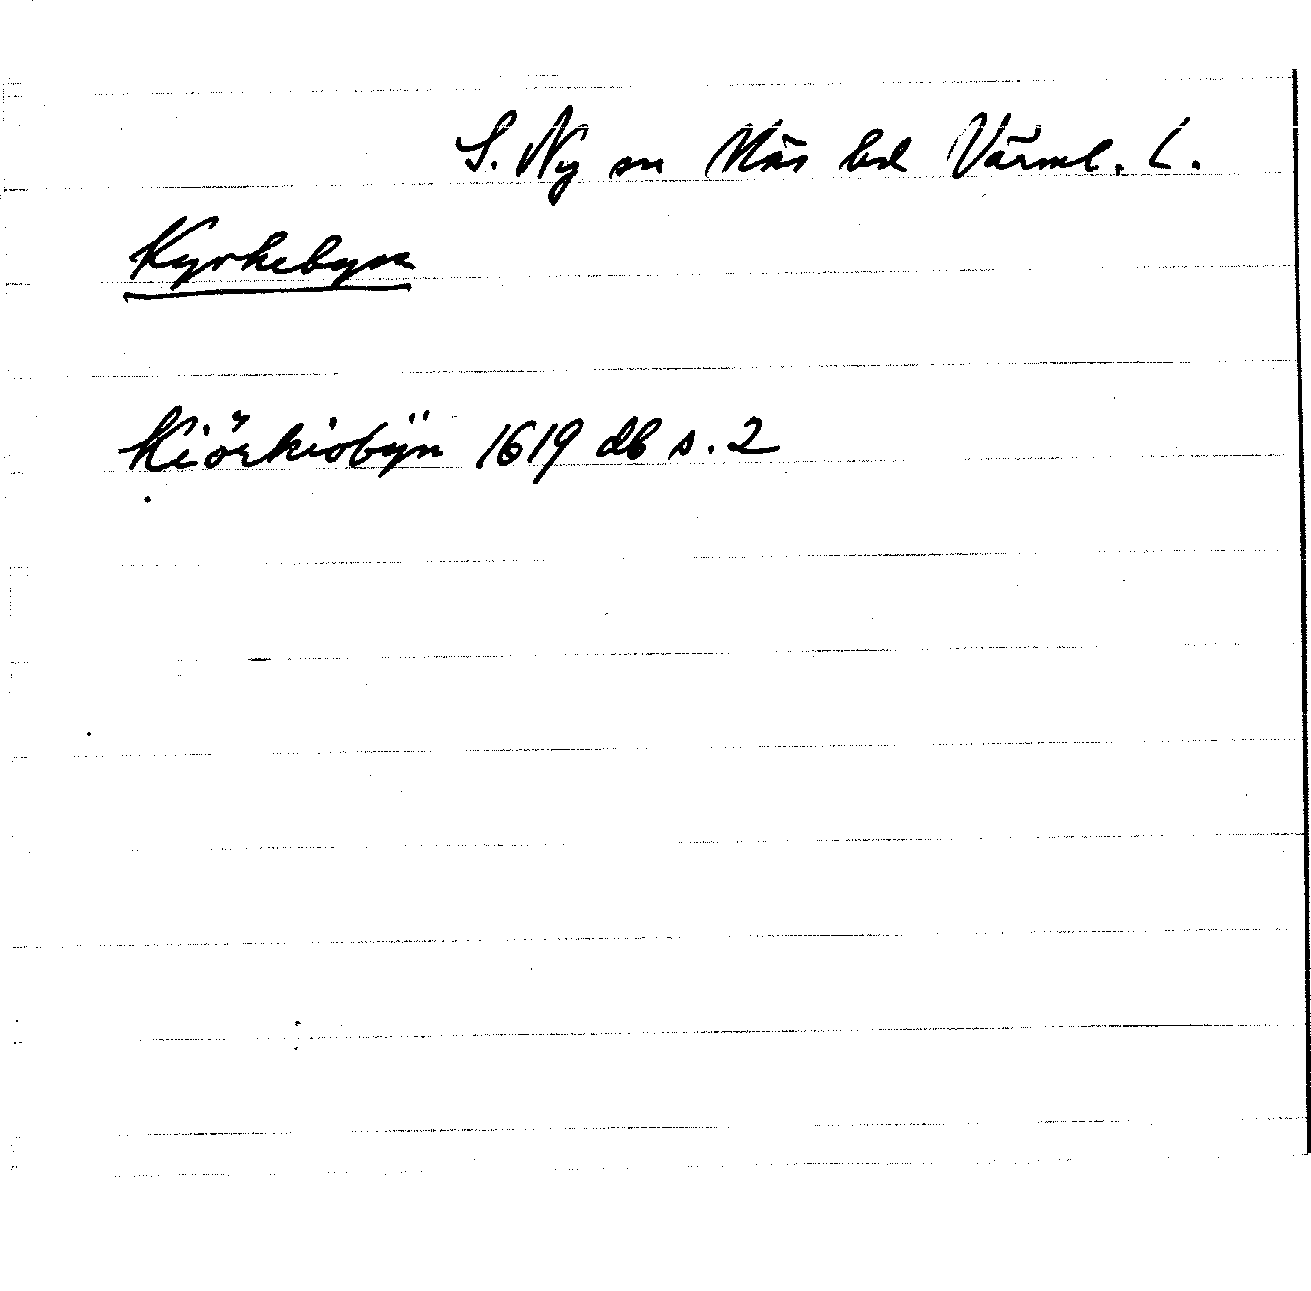 S. Ny sn Näs hd Värml. L.
Kyrkebyn
Kiörkiobÿn 1619 db s. 2